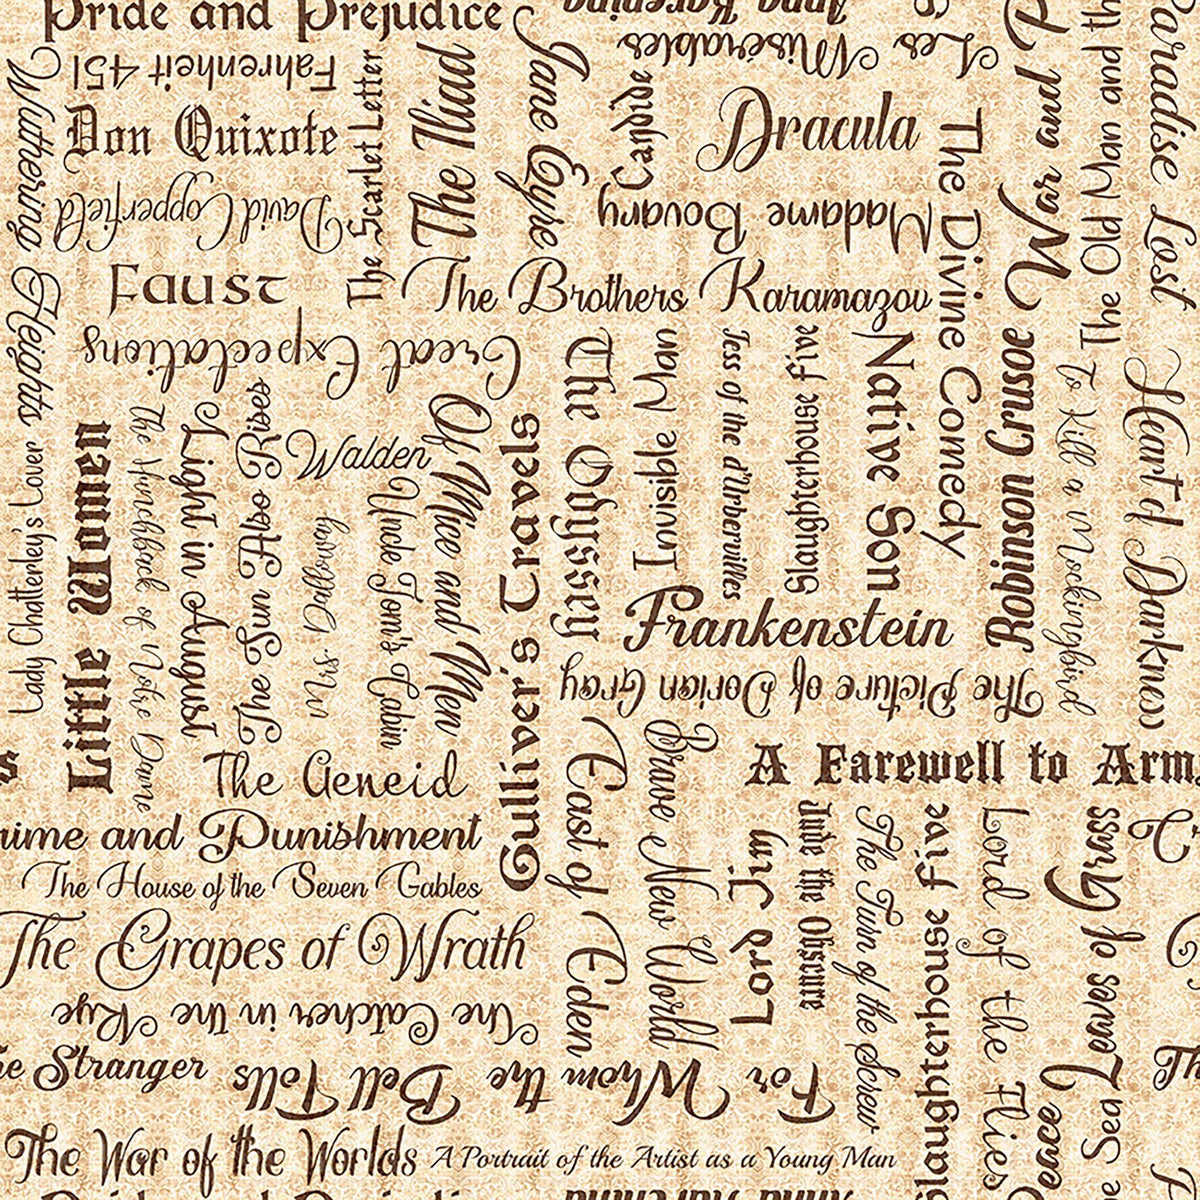 Pride and Prejudice
Anna Karenina
Les Misérables
Fahrenheit 451
Don Quixote
David Copperfield
Wuthering Heights
The Scarlet Letter
The Iliad
Jane Eyre
Candide
Dracula
Madame Bovary
The Divine Comedy
War and P
The Old Man and th
Paradise Lost
Faust
The Brothers Karamazov
Great Expectations
Lady Chatterley's Lover
Little Women
The Hunchback of Notre Dame
Light in August
The Sun Also Rises
Walden
Mrs. Dalloway
Uncle Tom's Cabin
Of Mice and Men
Gulliver's Travels
The Odyssey
Invisible Man
Tess of the d'Urbervilles
Slaughterhouse Five
Native Son
Robinson Crusoe
To Kill a Mockingbird
Heart of Darkness
Frankenstein
The Picture of Dorian Gray
s
A Farewell to Arm
The Aeneid
rime and Punishment
The House of the Seven Gables
The Grapes of Wrath
The Catcher in the Rye
he Stranger
For Whom the Bell Tolls
East of Eden
Brave New World
Lord Jim
Jude the Obscure
The Turn of the Screw
Slaughterhouse Five
Lord of the Flies
Leaves of Grass
Peace
e Sea
Th
The War of the Worlds
A Portrait of the Artist as a Young Man
Pride and Prejudice
Anna Karenina